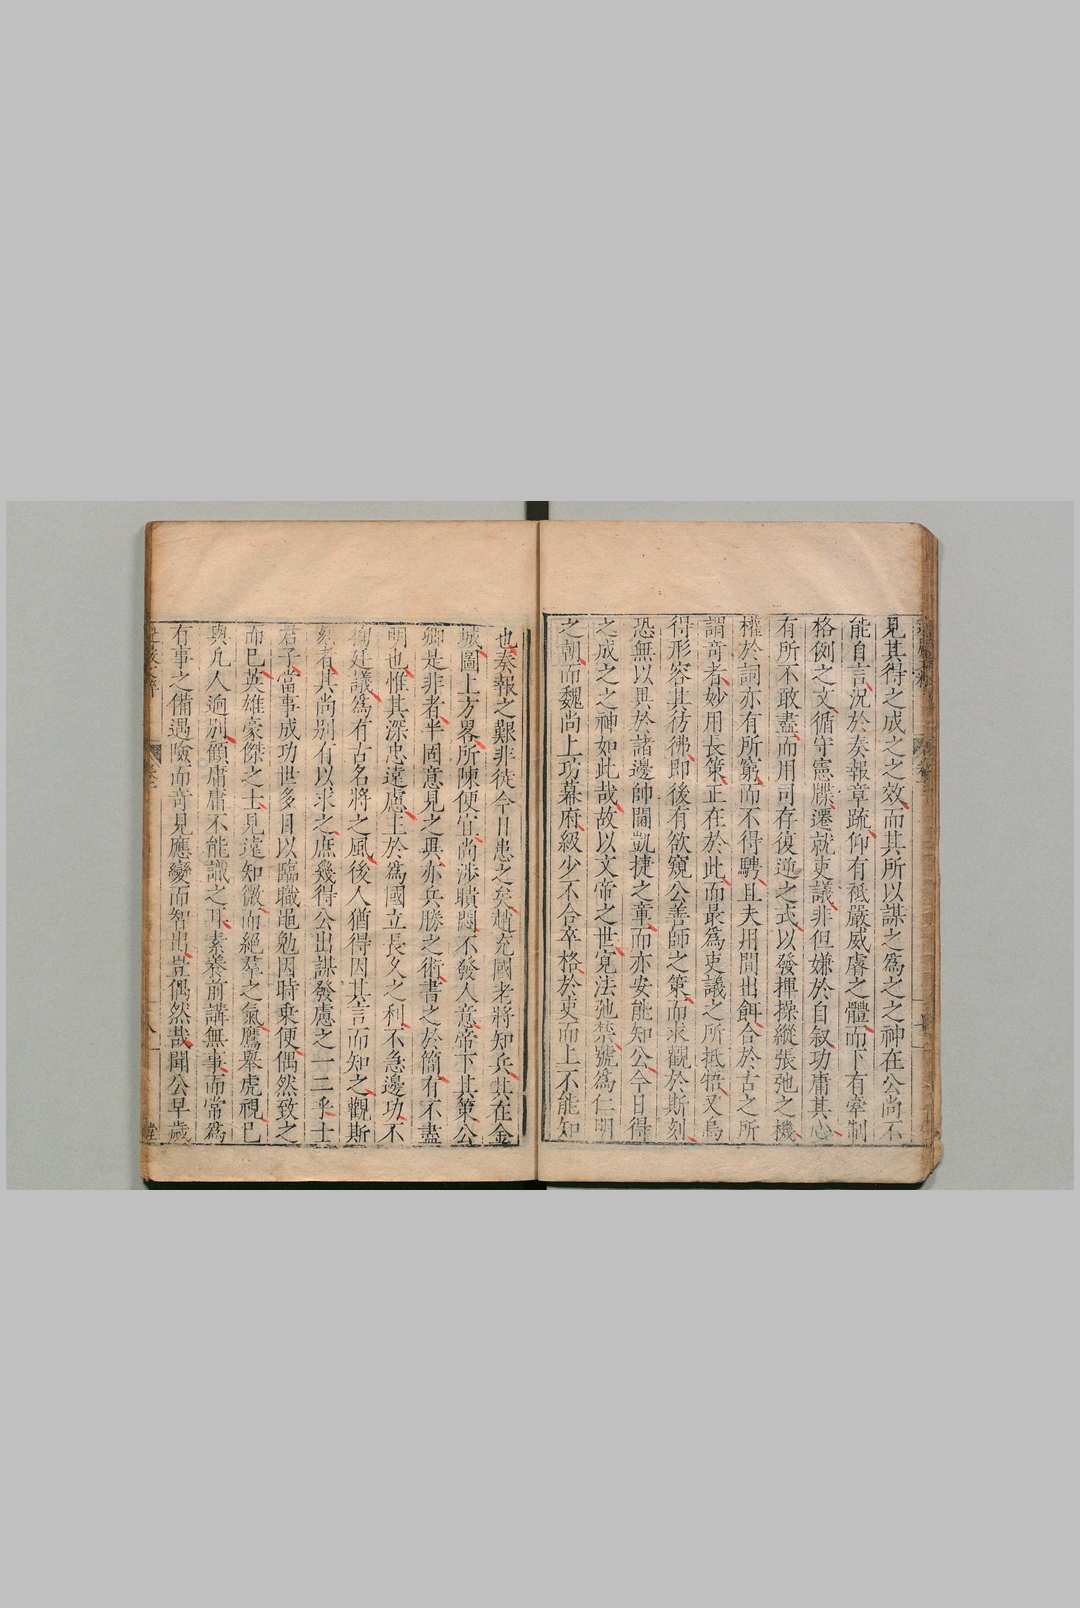 見其得之成之之效而其所以謀之爲之之神在公尚不
能自言況於奏報章疏仰有祗嚴威膚之體而下有牽制
格例之文循守憲牒遷就吏議非但嫌於自叙功庸其心
有所不敢盡而用可存復逆之式以發揮操縱張弛之機
權於詞亦有所窮而不得騁且夫用間出餌合於古之所
謂奇者妙用長策正在於此而最爲吏議之所抵牾又烏
得形容其彷彿即後有欲窺公善師之策而求觀於斯刻
恐無以異於諸邊帥闢凱捷之章而亦安能知公今日得
之成之之神如此哉故以文帝之世寬法弛禁號爲仁明
之朝而魏尚上功幕府級少不合卒格於吏而上不能知
也奏報之艱非徒今日患之矣趙充國老將知兵其在金
城圖上方畧所陳便宜尚涉聵悶不發人意帝下其策公
卿是非者半固意見之異亦兵勝之術書之於簡有不盡
明也惟其深忠遠慮主於爲國立長久之利不急邊功不
徇廷議爲有古名將之風後人猶得因其言而知之觀斯
刻者其尚別有以求之庶幾得公出謀發慮之一二乎士
君子當事成功世多目以臨職黽勉因時乘便偶然致之
而已英雄豪傑之士見遠知微而絕羣之氣鷹舉虎視已
與凡人逈別顧庸庸不能識之耳素養前講無事而常爲
有事之備遇險而竒見應變而智出豈偶然哉聞公早歲